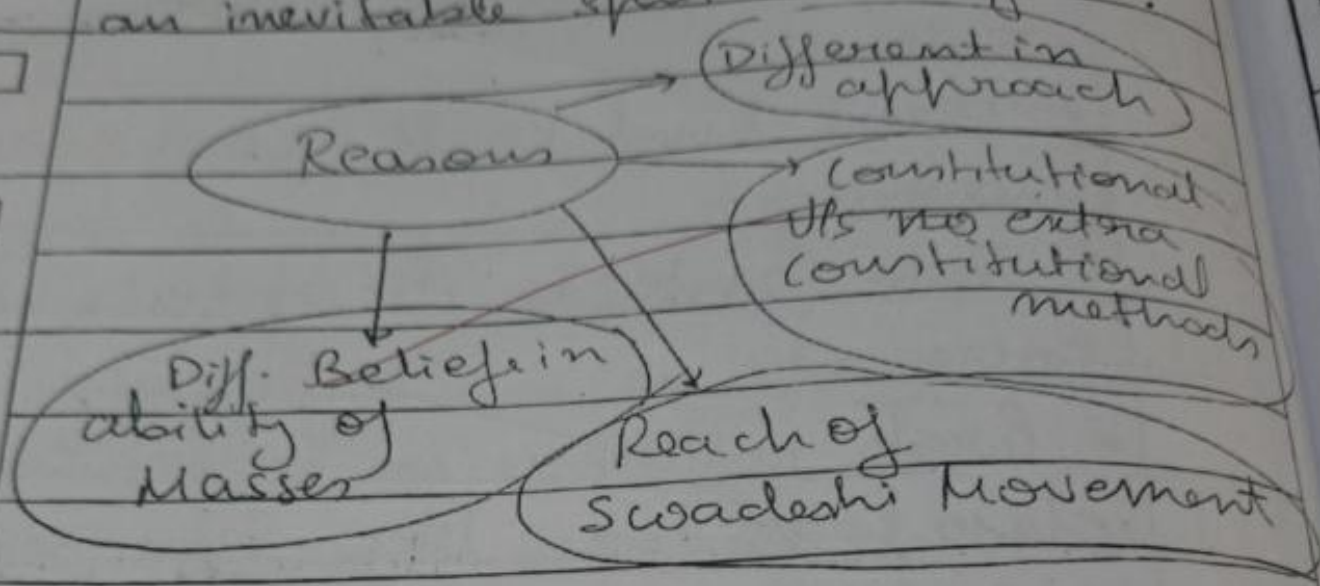 an inevitable
Different in
approach
Reasons
Constitutional
V/s no extra
Constitutional
methods
Diff. Beliefs in
ability of
Masses
Reach of
Swadeshi Movement